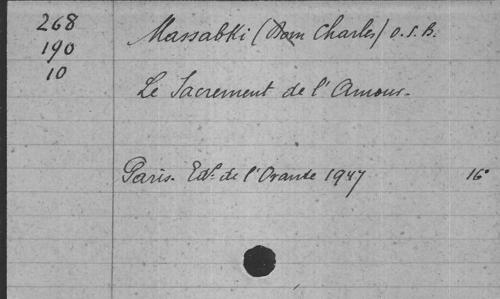 268
190
10
Massabki (Dom Charles) O.S.B.
Le Sacrement de l'Amour.
Paris. Edⁿˢ de l'Orante 1947 16°